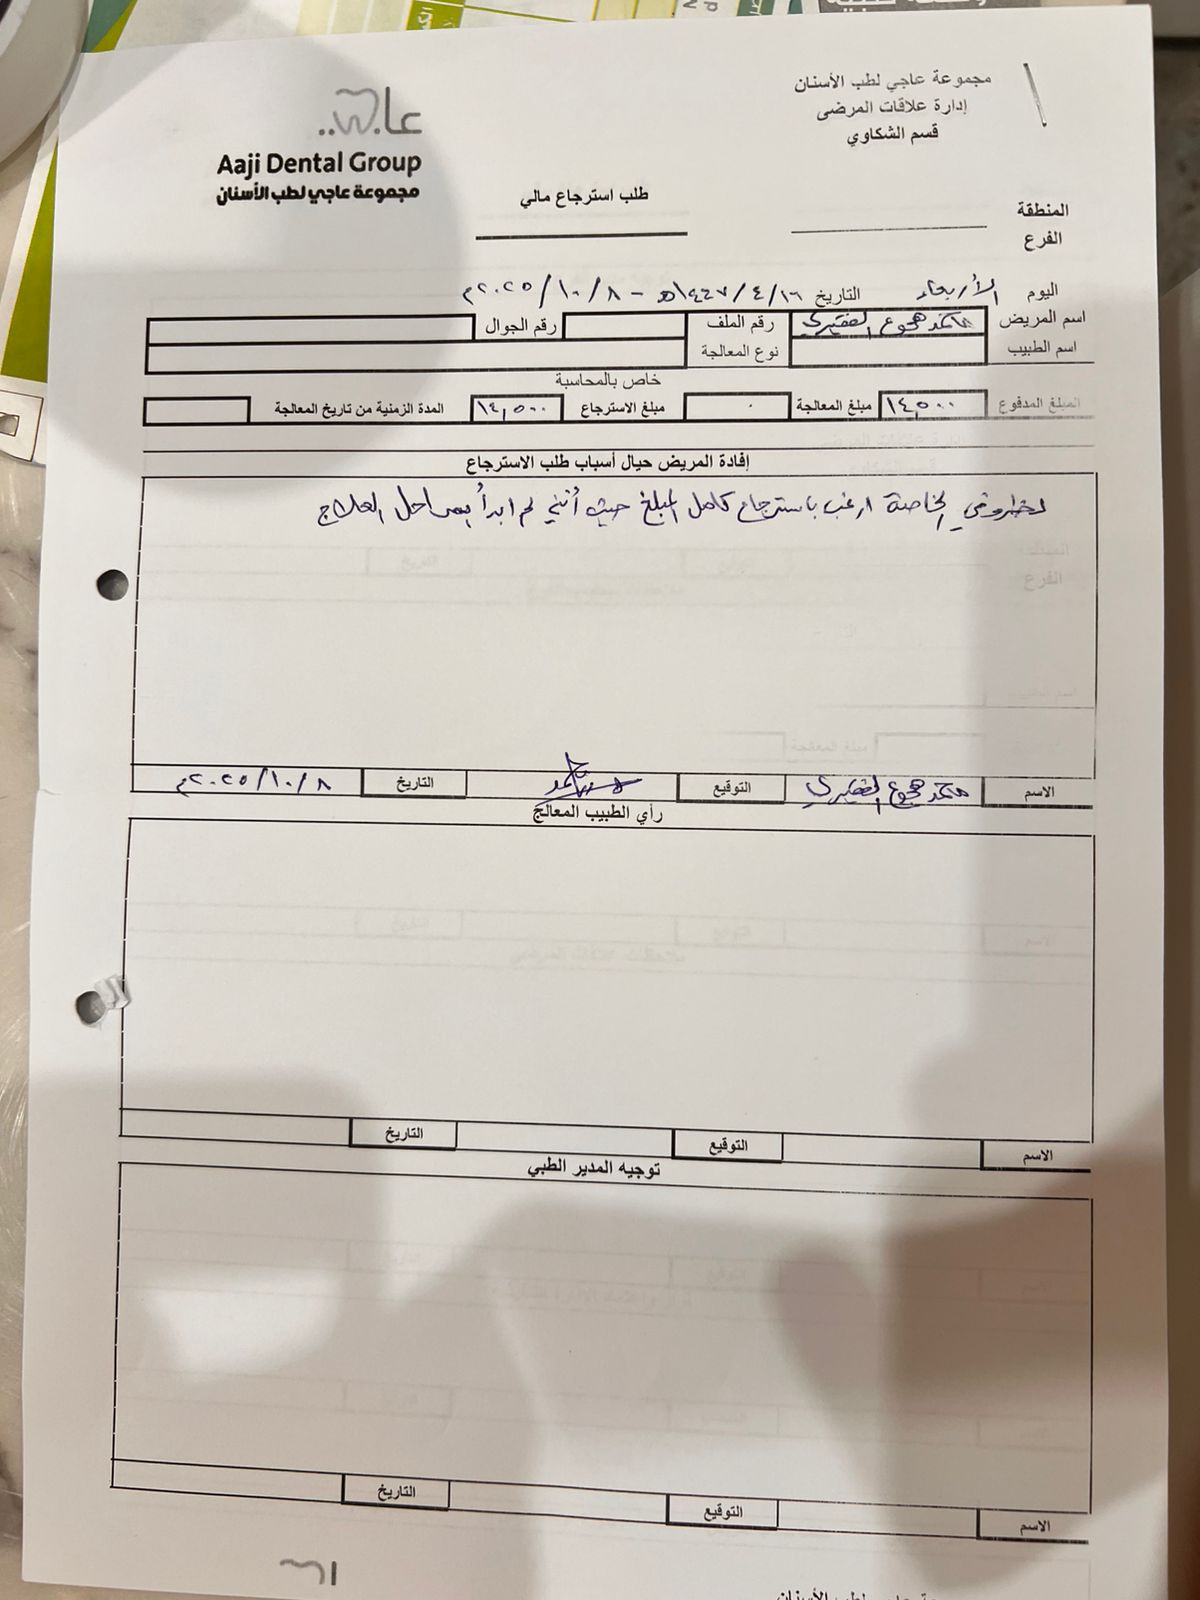 مجموعة عاجي لطب الأسنان
إدارة علاقات المرضى
قسم الشكاوي
عاجي
Aaji Dental Group
مجموعة عاجي لطب الأسنان
طلب استرجاع مالي
المنطقة
الفرع
اليوم الأربعاء التاريخ ١٤٤٧/٤/١٦هـ - ٢٠٢٥/١٠/٨م
اسم المريض محمد هجوع رقم الملف رقم الجوال
اسم الطبيب نوع المعالجة
خاص بالمحاسبة
المبلغ المدفوع ١٤,٥٠٠ مبلغ المعالجة ٠ مبلغ الاسترجاع ١٤,٥٠٠ المدة الزمنية من تاريخ المعالجة
إفادة المريض حيال أسباب طلب الاسترجاع
لظروفي الخاصة ارغب باسترجاع كامل المبلغ حيث أنني لم ابدأ بمراحل العلاج
الاسم محمد هجوع التوقيع التاريخ ٢٠٢٥/١٠/٨م
رأي الطبيب المعالج
الاسم التوقيع التاريخ
توجيه المدير الطبي
الاسم التوقيع التاريخ